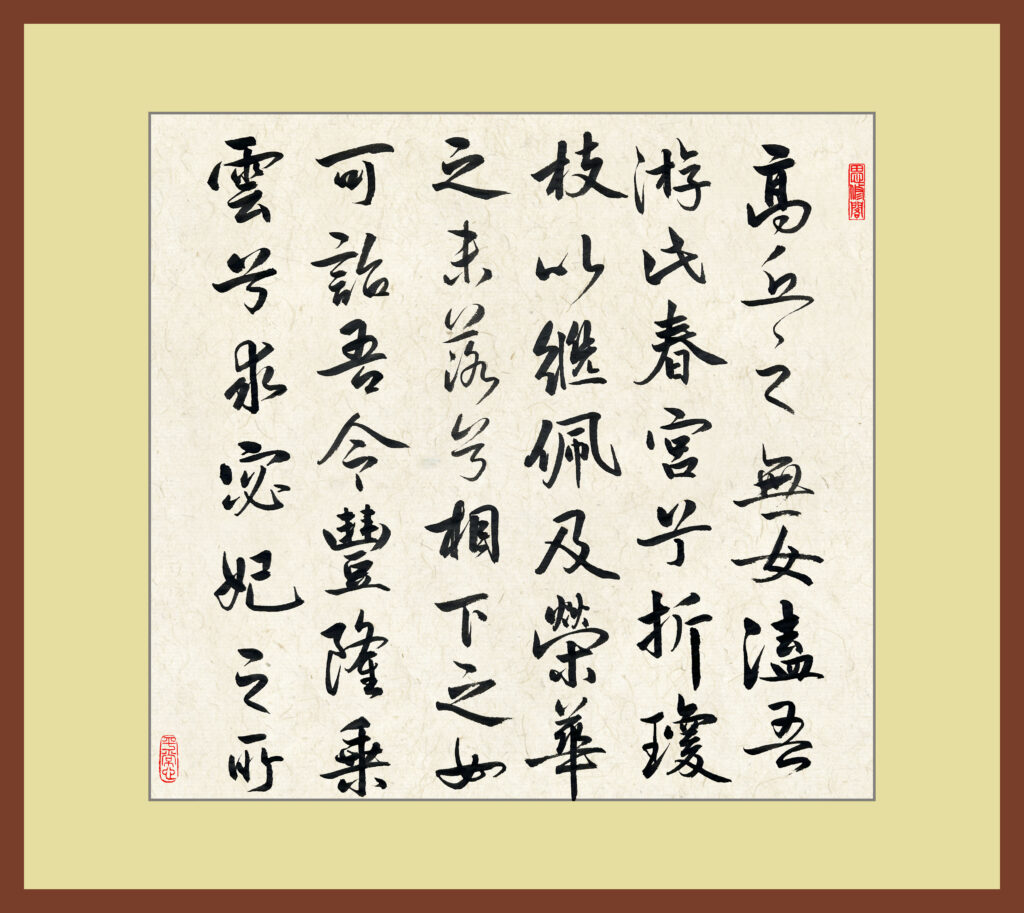 思修閣
高丘之無女溘吾
游此春宮兮折瓊
枝以繼佩及榮華
之未落兮相下之女
可詒吾令豐隆乘
雲兮求宓妃之所
平常心